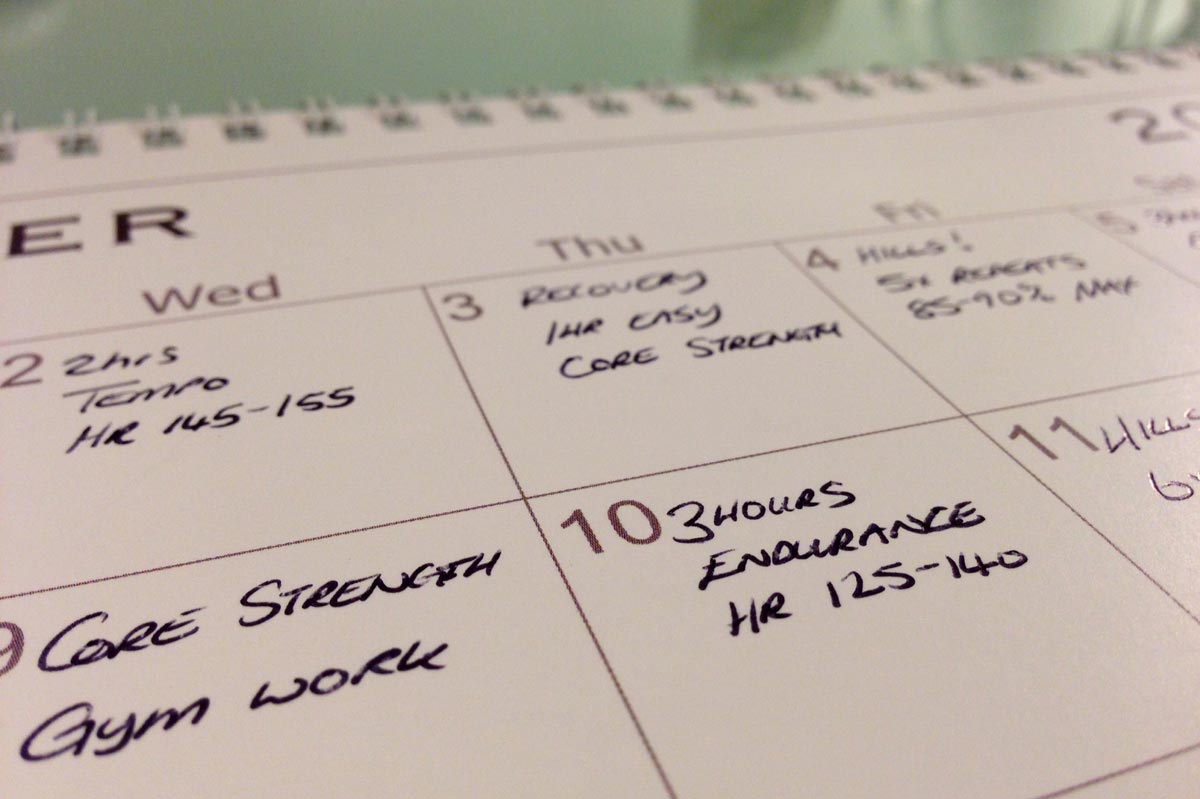 ER
Wed
Thu
Fri
2 2hrs
TEMPO
HR 145-155
3 RECOVERY
1HR EASY
CORE STRENGTH
4 HILLS!
5x REPEATS
85-90% MAX
5
9 CORE STRENGTH
Gym WORK
10 3 HOURS
ENDURANCE
HR 125-140
11 HILLS